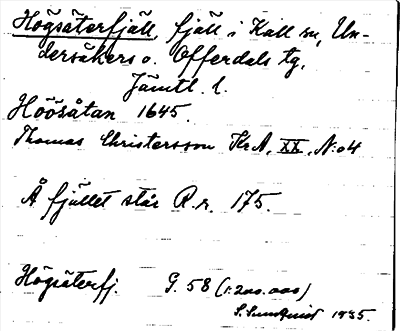 Högsåterfjäll, fjäll i Kall sn, Un-
dersåkers o. Offerdals tg.
Jämtl. l.
Höösåtan 1645.
Thomas Christersson Kr.A. XX, N:o4
Å fjället står R.r. 175.
Högsåterfj. G. 58 (1:200.000)
S. Sundquist 1935.